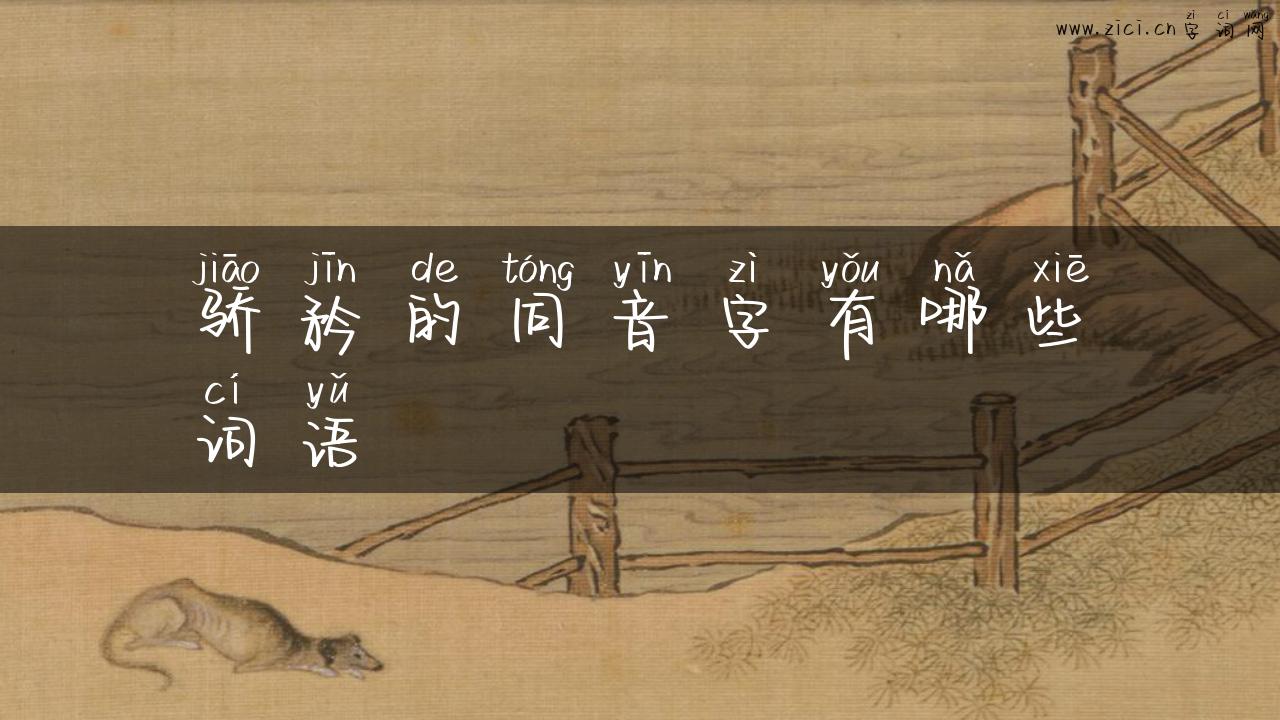 zì cí wǎng
www.zici.cn字词网
jiāo jīn de tóng yīn zì yǒu nǎ xiē
骄矜的同音字有哪些
cí yǔ
词语